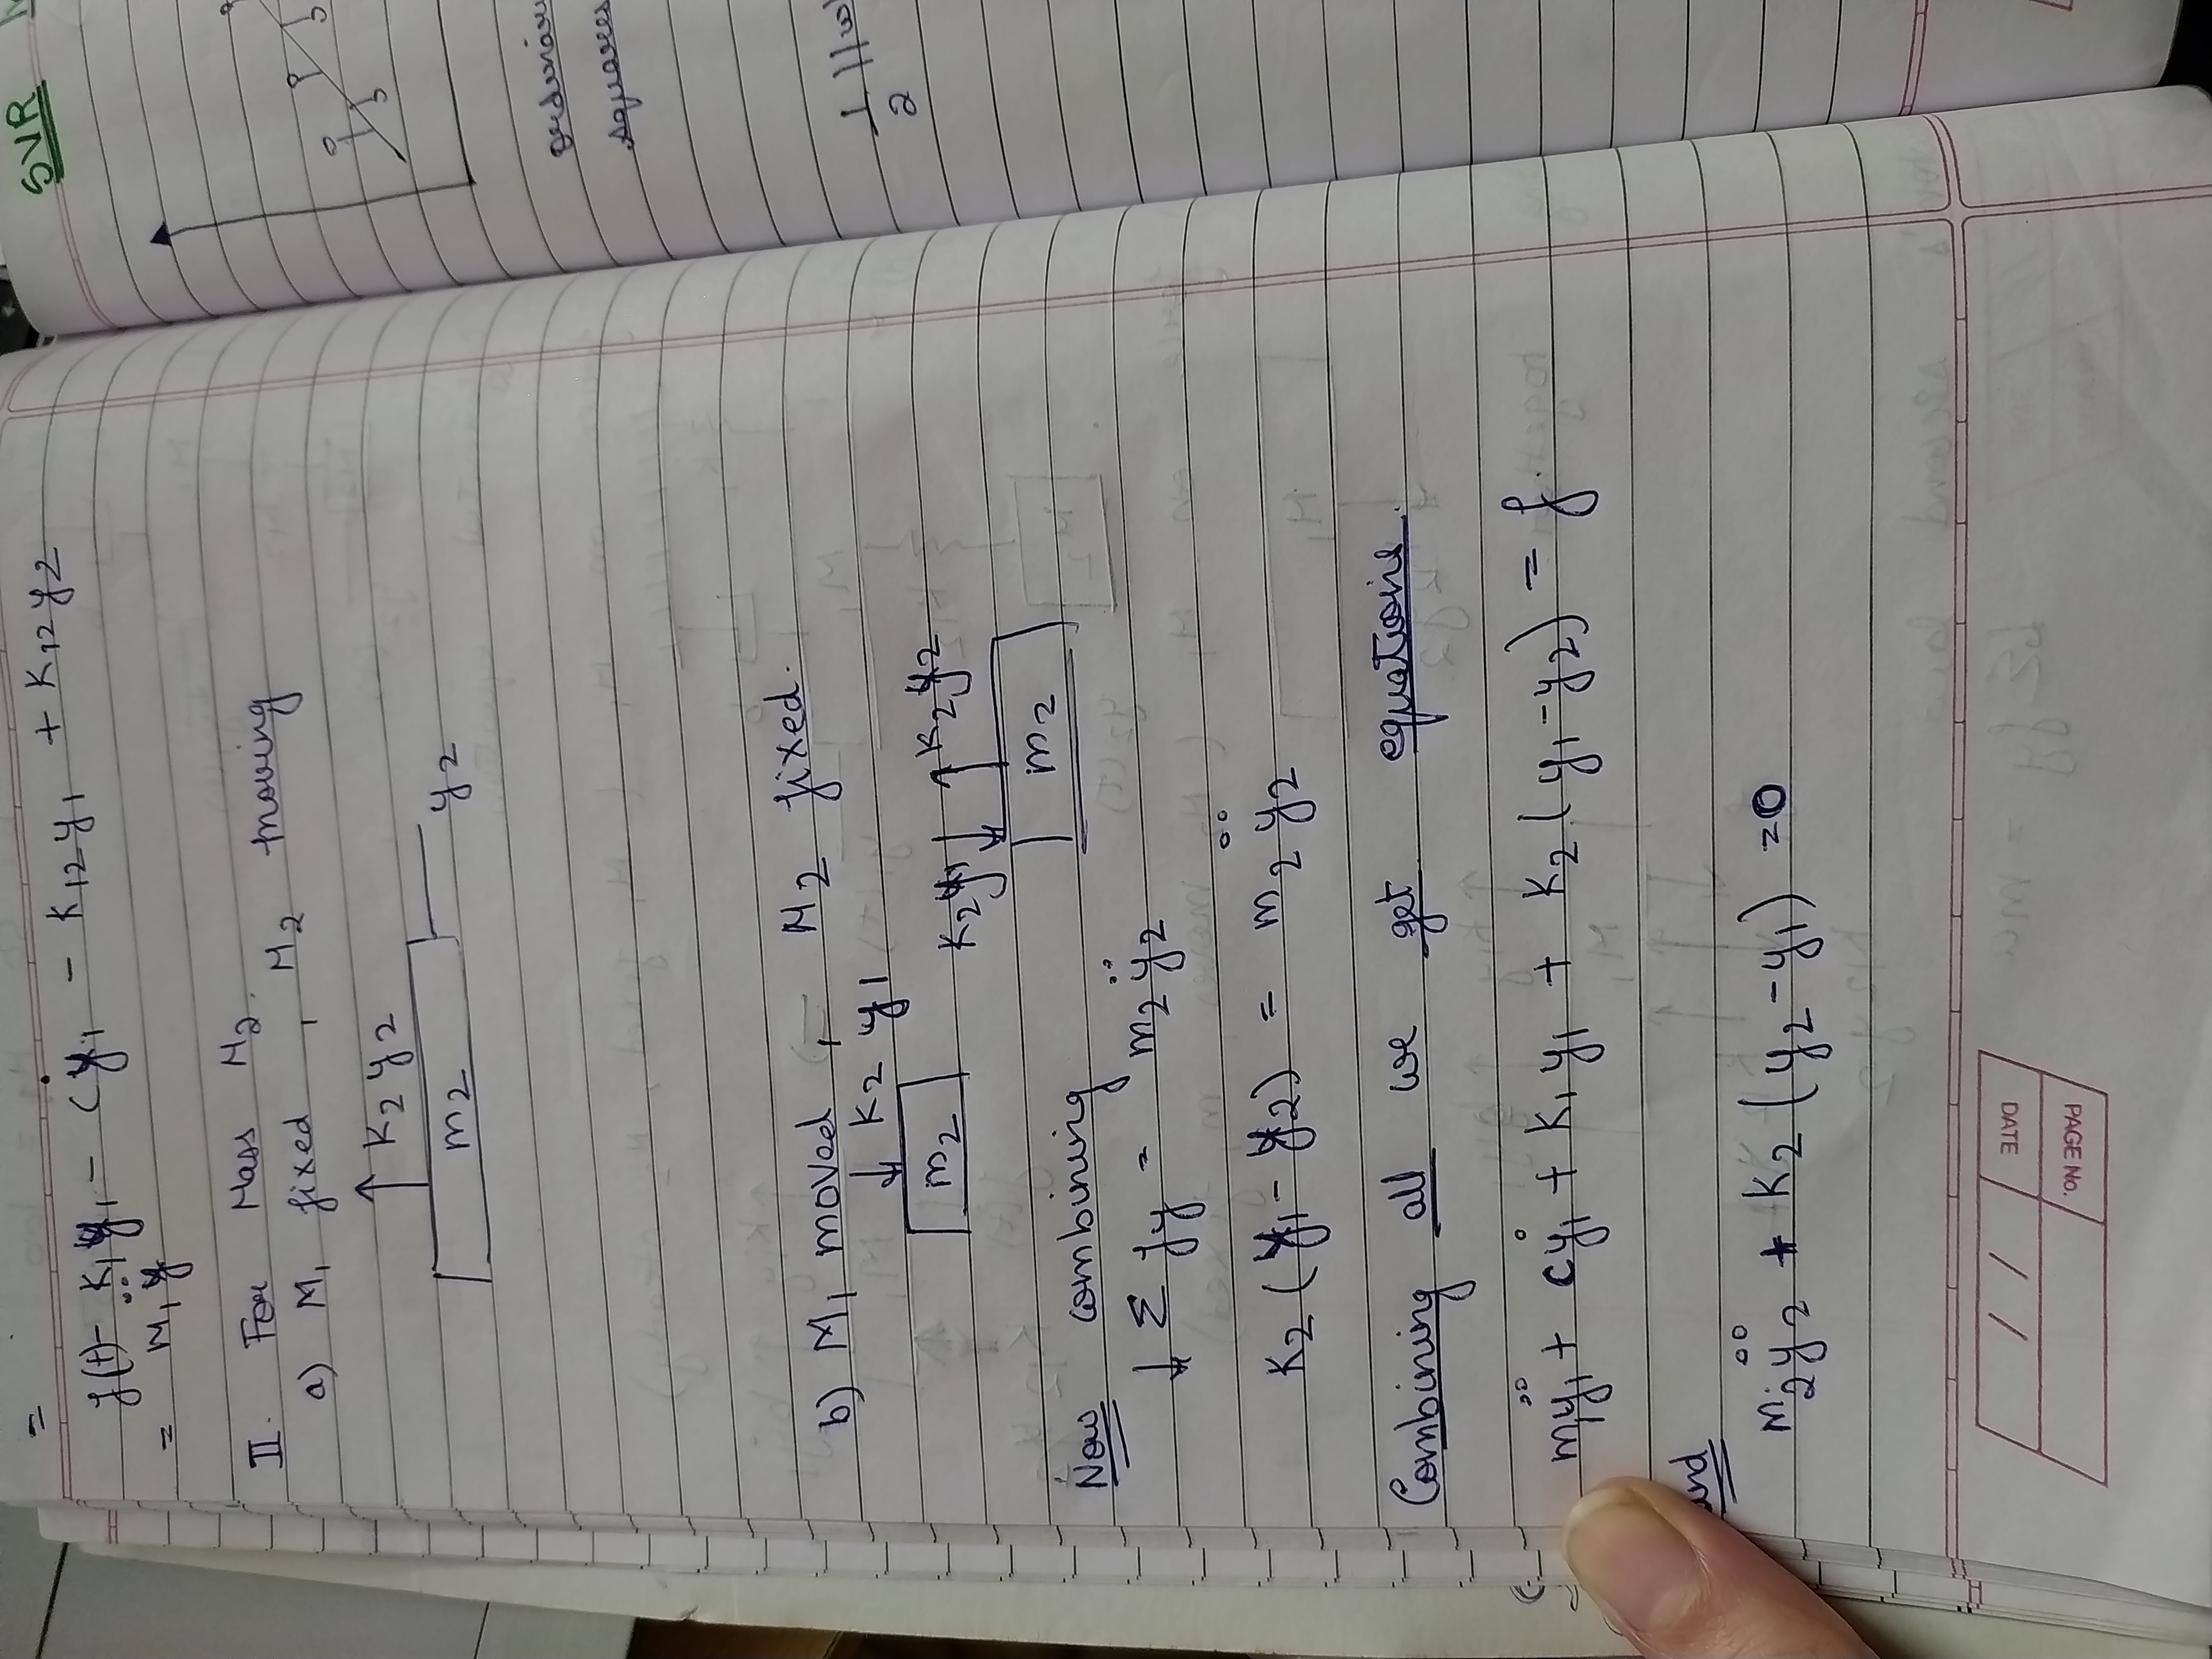 =
f(t) - K₁y₁ - cẏ₁ - K₁₂y₁ + K₁₂y₂
= M₁ÿ
II. For Mass M₂.
a) M₁ fixed , M₂ moving
K₂y₂
m₂
y₂
b) M₁ moved , M₂ fixed.
K₂ y₁
m₂
K₂y₁ K₂y₂
m₂
Now combining
↓ Σ fy = m₂ÿ₂
K₂ (y₁ - y₂) = m₂ÿ₂
Combining all we get equations.
m₁ÿ₁ + cẏ₁ + K₁y₁ + K₂(y₁-y₂) = f.
and
m₂ÿ₂ + K₂(y₂-y₁) = 0
DATE / /
PAGE No.
SVR
squares
1/2 ||w